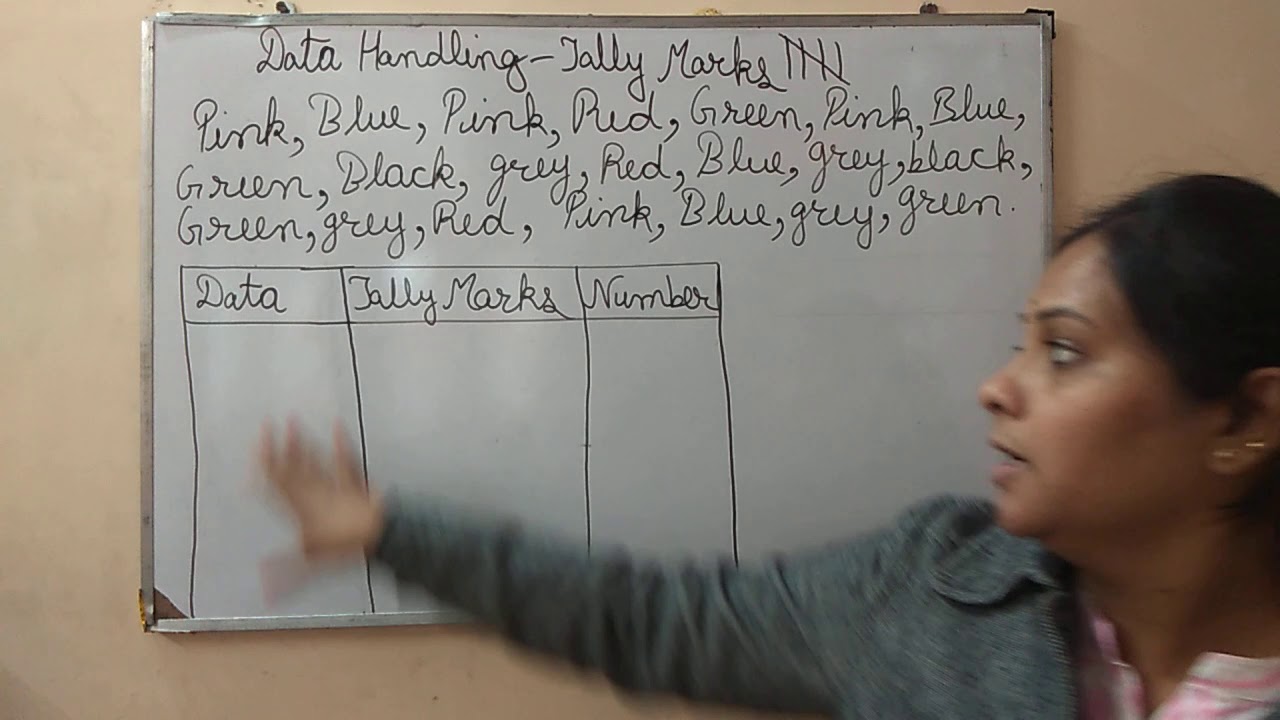 Data Handling - Tally Marks
Pink, Blue, Pink, Red, Green, Pink, Blue,
Green, Black, grey, Red, Blue, grey, black,
Green, grey, Red, Pink, Blue, grey, green.
Data Tally Marks Number